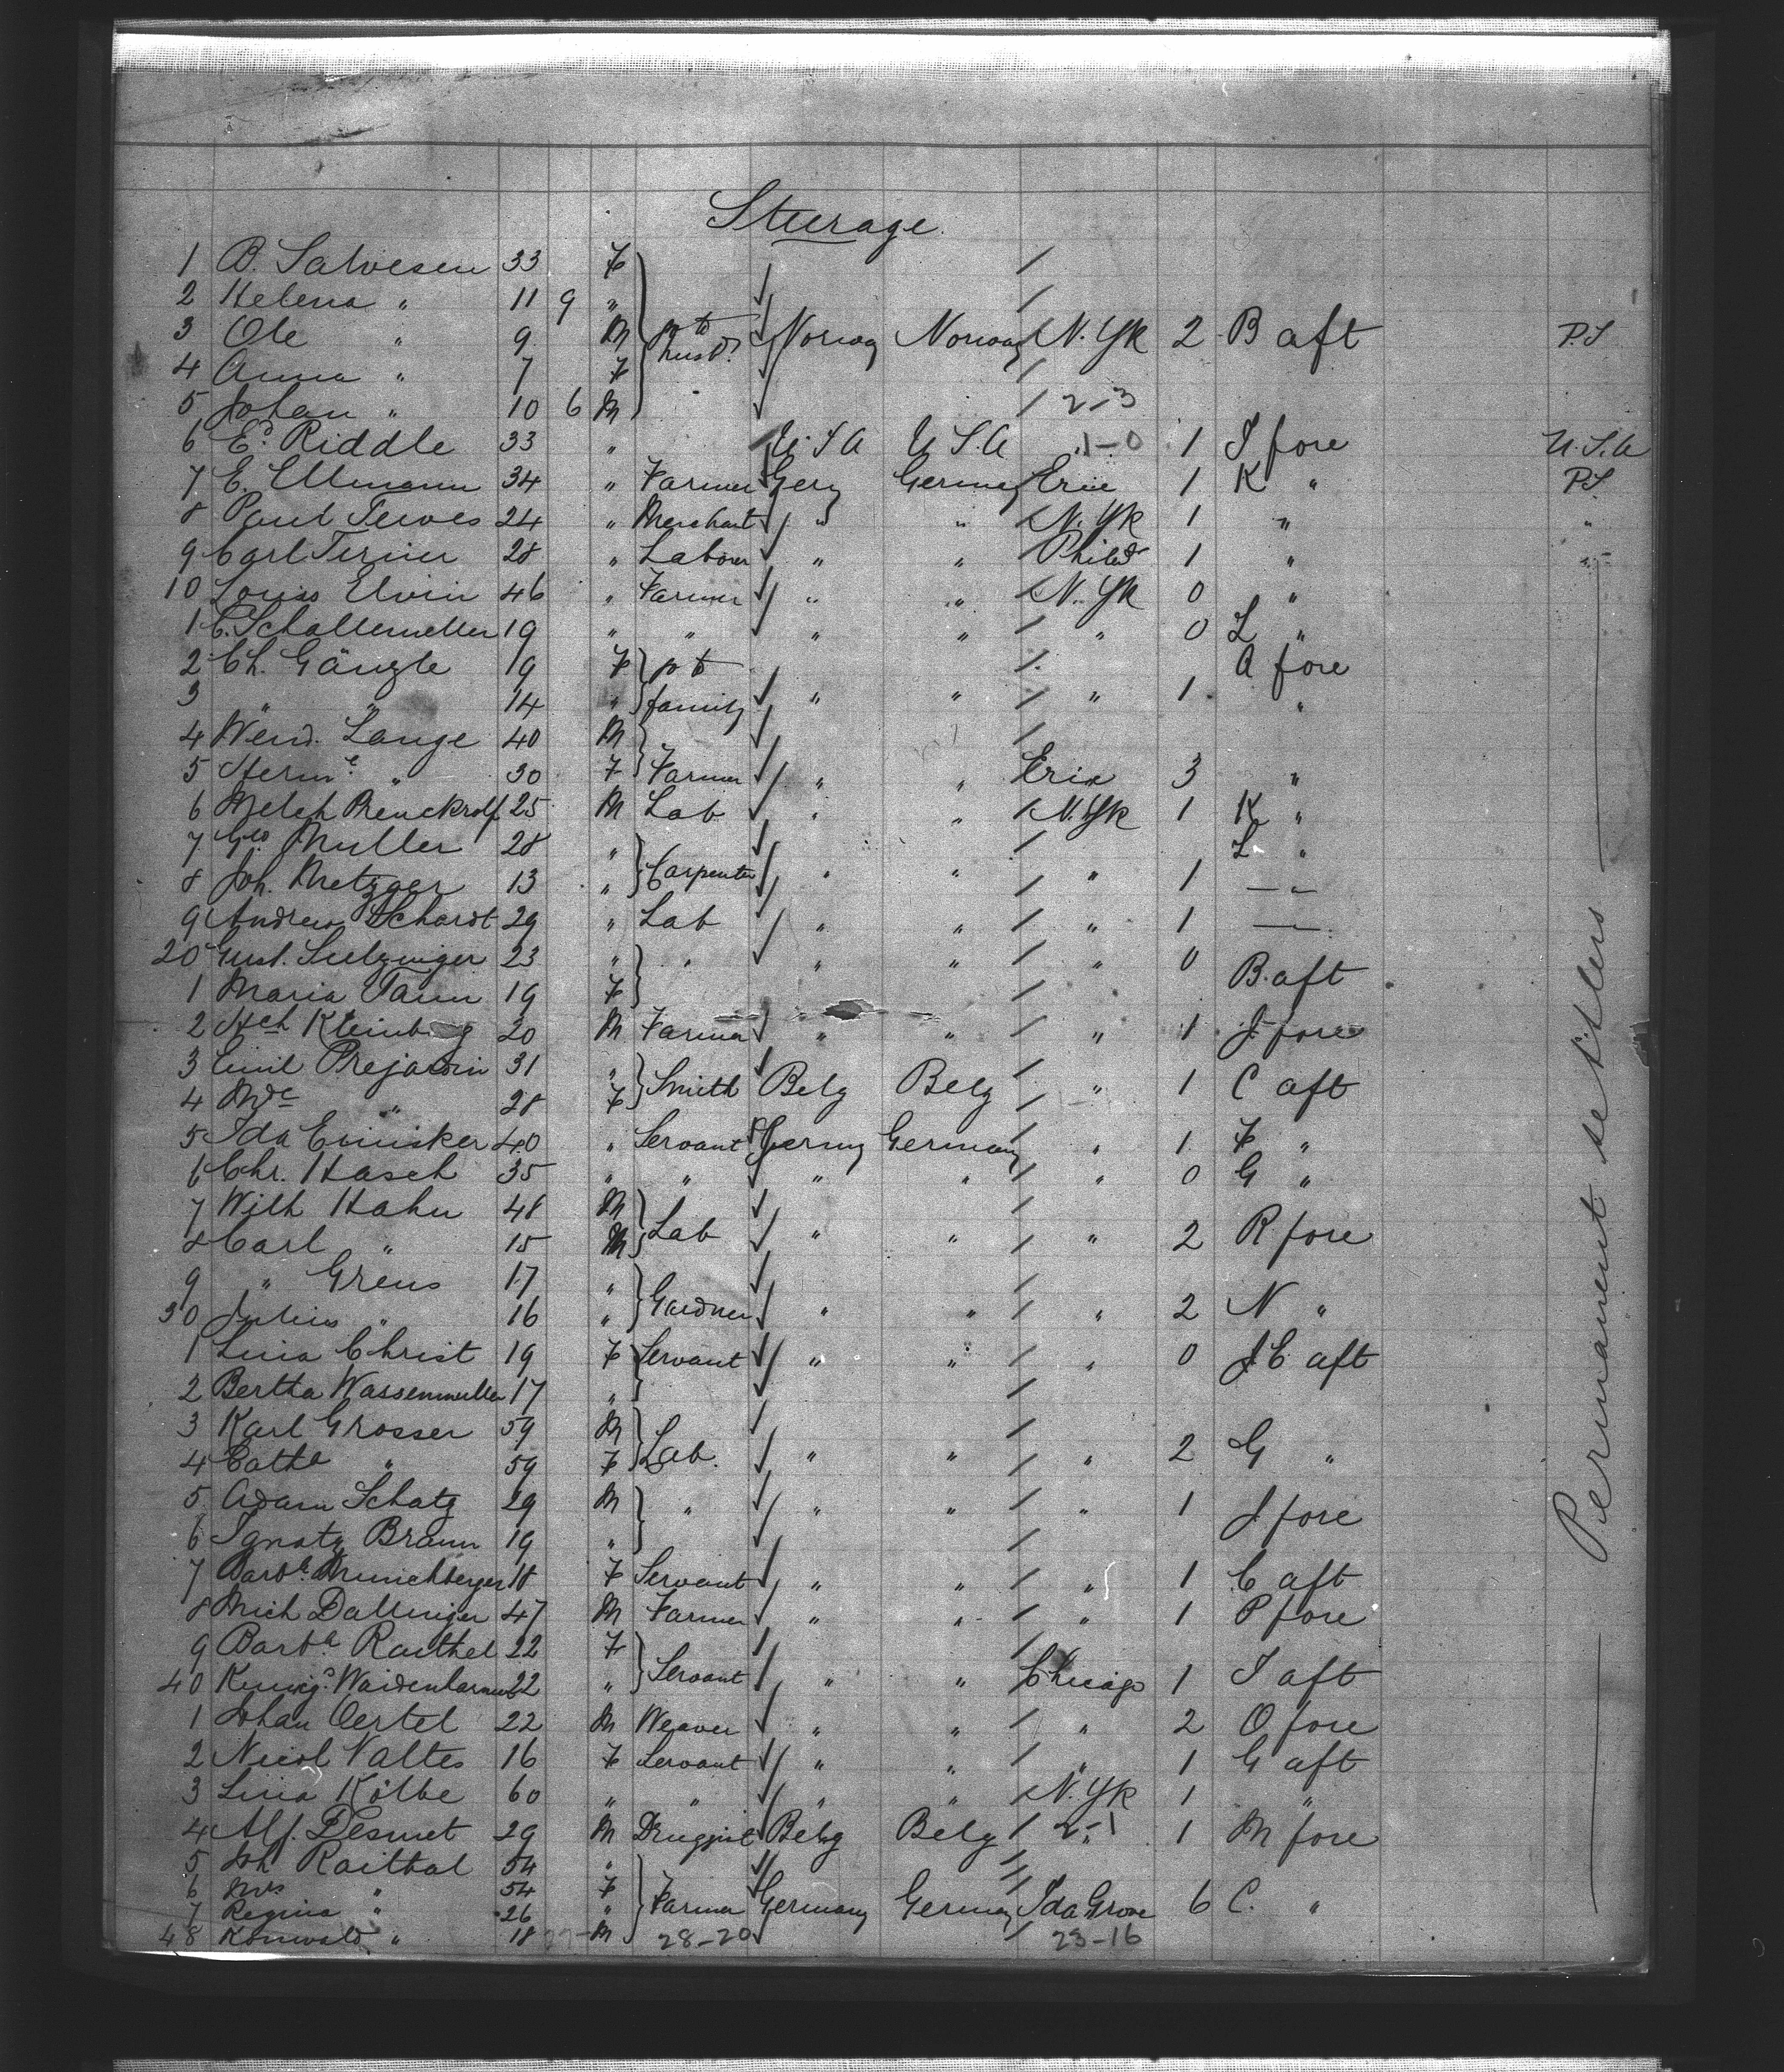 Steerage.
1 B. Salvesen 33 F
2 Helena " 11 9 "
3 Ole " 9 M to husbd. Norway Norway N. Yk 2 B aft P.S
4 Anna " 7 F
5 Johan " 10 6 M 2-3
6 Ed. Riddle 33 " U S A U S. A 1-0 1 I fore U.S.A
7 E. Ellmann 34 " Farmer Gery Germay Erie 1 K " P.S.
8 Paul Tewes 24 " Merchant " " N. Yk 1 " "
9 Carl 28 " Laborer " " Philad 1 " "
10 Louis Elvin 46 " Farmer " " N. Yk 0 "
1 C. 19 " " " " " 0 L "
2 Ch. Gängle 19 F to A fore
3 " " 14 " family " " " 1 "
4 Wend. Lange 40 M
5 Herme " 30 F Farmer " " Erie 3 "
6 Melch 25 M Lab " " N. Yk 1 K "
7 Geo Muller 28 " L "
8 Joh. Metzger 13 " Carpenter " " " 1 — " —
9 Andrew Schardt 29 " Lab " " " 1 —
20 Gust. 23 " " " " " 0 B. aft
1 Maria 19 F
2 Hch Kleinb g 20 M Farmer " " " 1 J fore
3 Emil Prejardin 31 "
4 Mde " 28 F Smith Belg Belg " 1 C aft
5 Ida 40 " Servant Germy Germany " 1 F "
6 Chr. Hasch 35 " " " " " 0 G "
7 Wilh Hahn 48 M
8 Carl " 15 M Lab " " " 2 R fore
9 " Grens 17 "
30 Julius " 16 " Gardner " " " 2 N "
1 Lina Christ 19 F Servant " " " 0 J C aft
2 Bertha Wassenmuller 17 "
3 Karl Grosser 59 M
4 Catha " 59 F Lab. " " " 2 G "
5 Adam Schatz 29 M " " " " 1 J fore
6 Ignatz Braun 19 "
7 Barba. Munichberger 18 F Servant " " " 1 C aft
8 Mich Dallinger 47 M Farmer " " " 1 P fore
9 Barba. Raithel 22 F
40 22 " Servant " " Chicago 1 I aft
1 Johan Oertel 22 M Weaver " " " 2 O fore
2 Nicol Valtes 16 F Servant " " " 1 G aft
3 Lina Kölbe 60 " " " " N. Yk 1 "
4 Alf. Desmet 29 M Druggist Belg Belg 2-1 " 1 M fore
5 Joh Raithal 54 "
6 Mrs " 54 F
7 Regina " 26 " Farmer Germany Germay Ida Grove 6 C. "
48 Konwald " 18 M 28-20 23-16
Permanent settlers